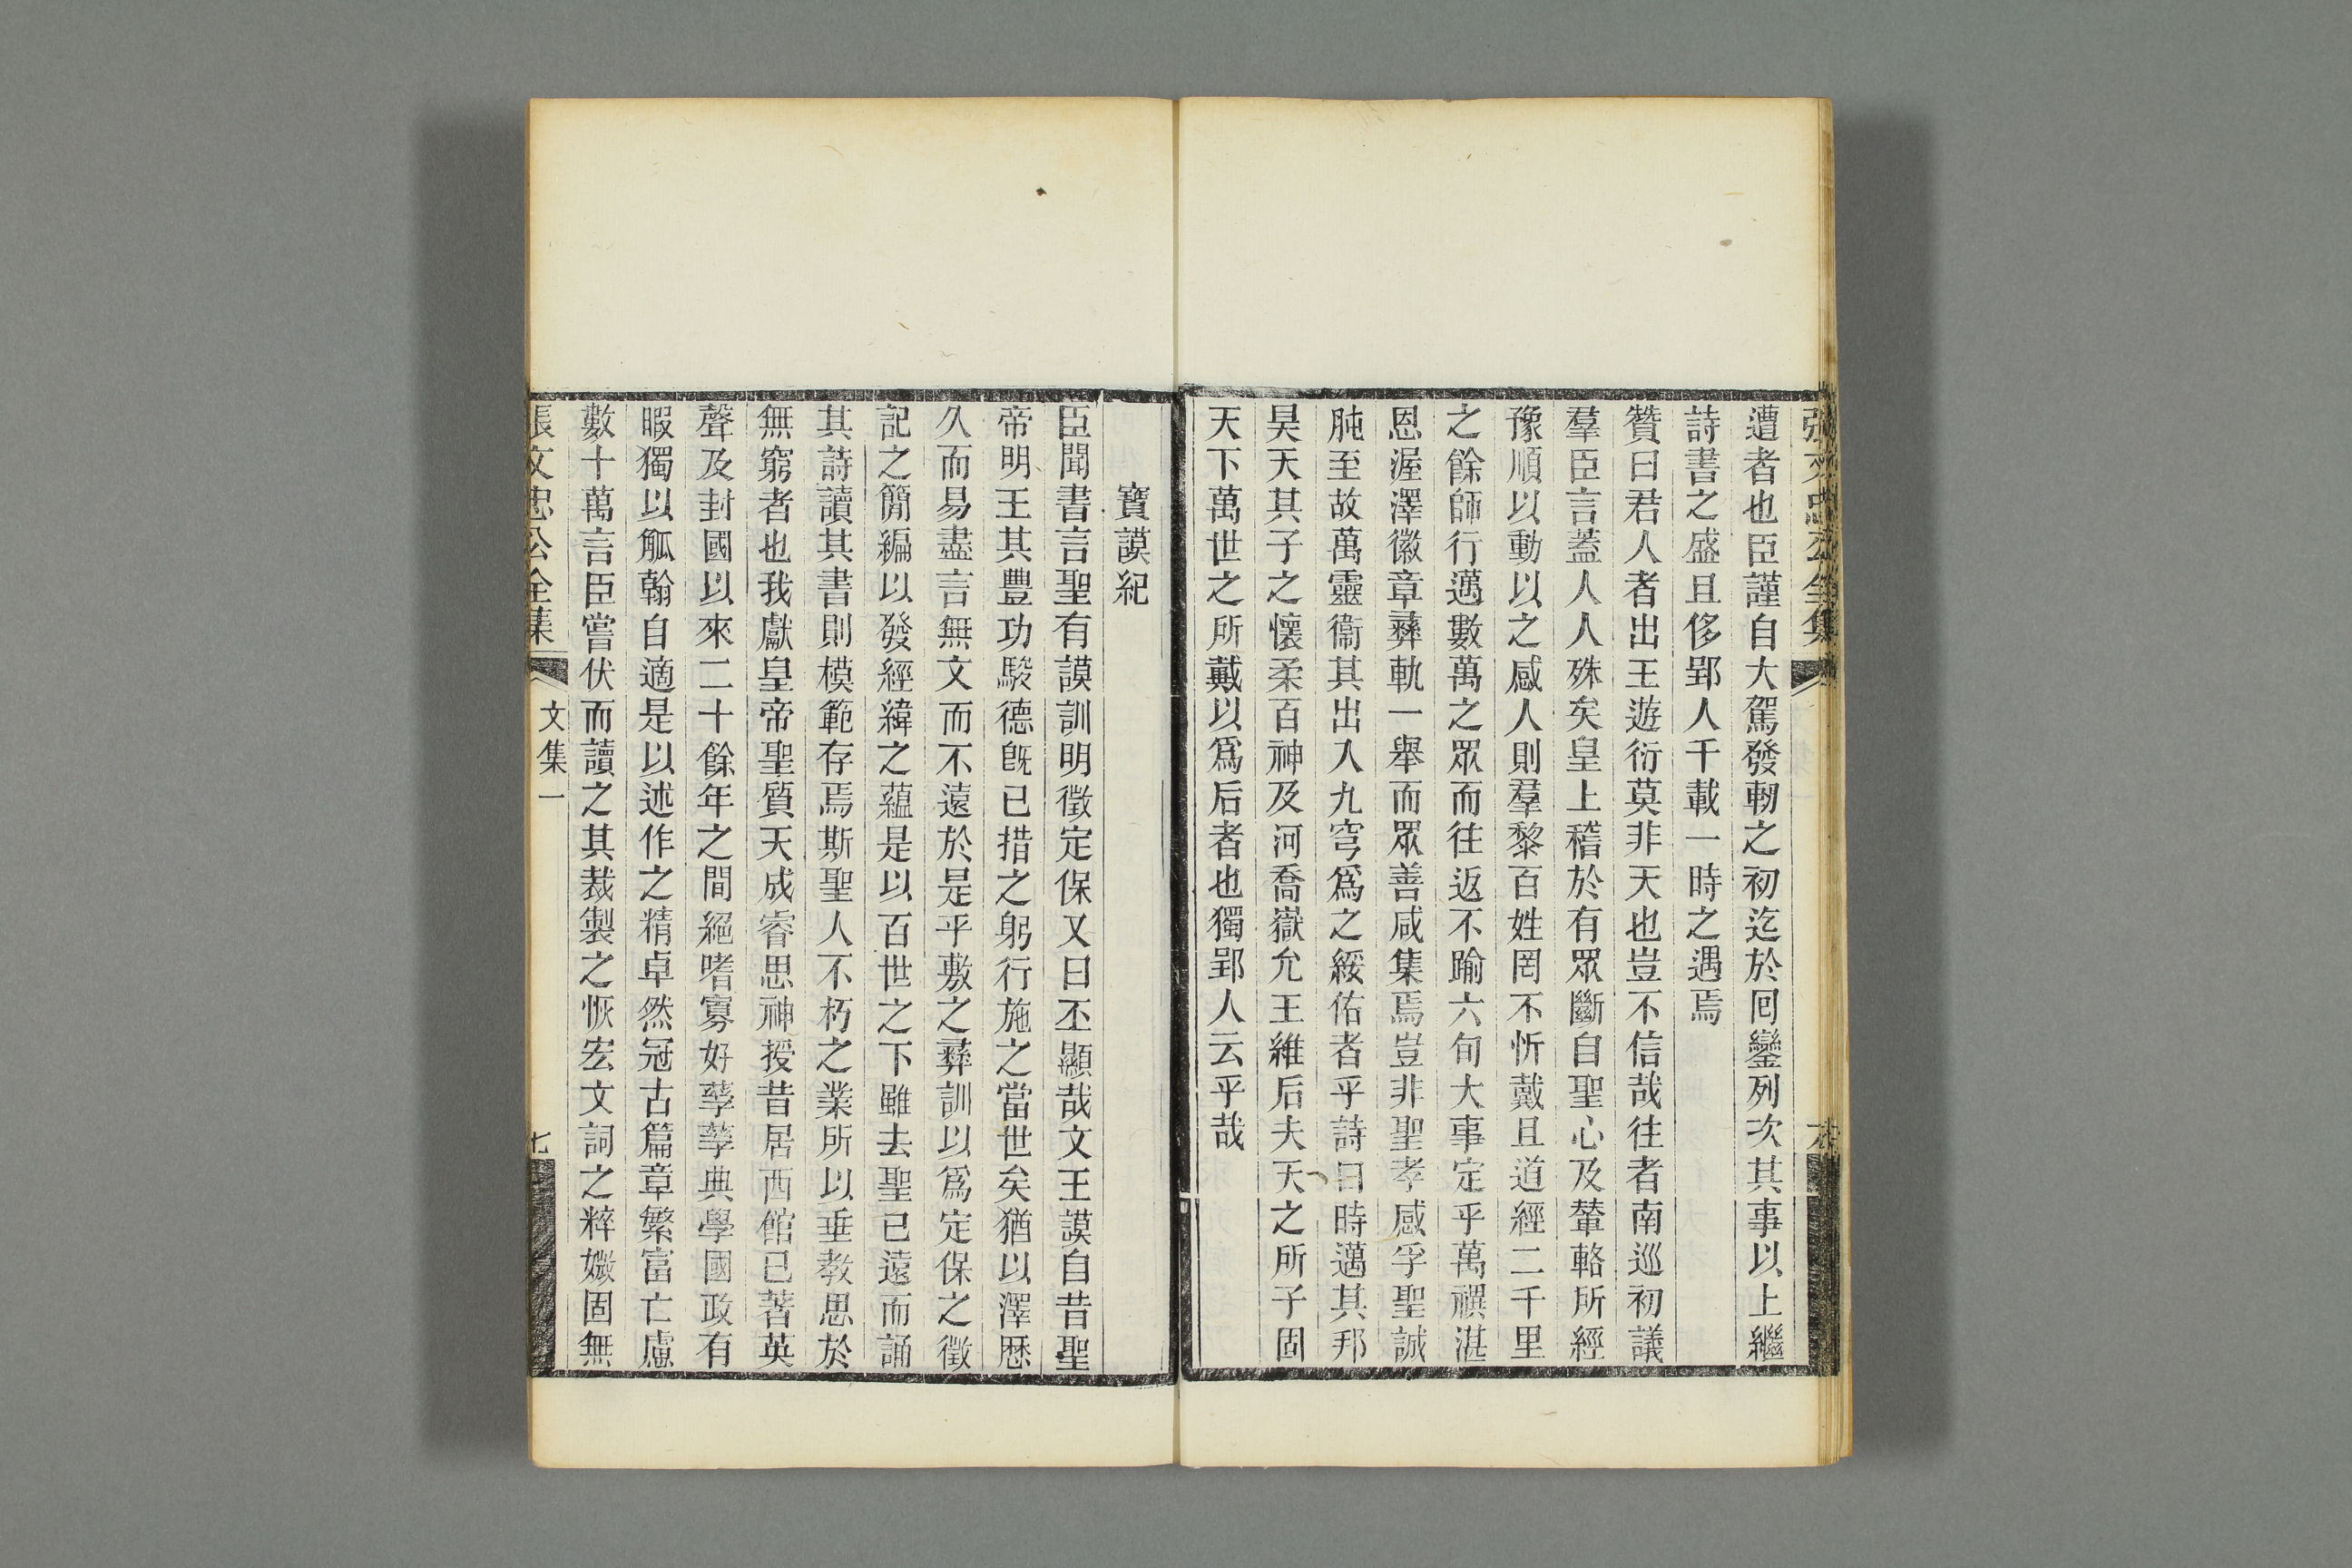 遭者也臣謹自大駕發軔之初迄於囘鑾列次其事以上繼
詩書之盛且侈郢人千載一時之遇焉
贊曰君人者出王遊衍莫非天也豈不信哉往者南巡初議
羣臣言蓋人人殊矣皇上稽於有眾斷自聖心及輦輅所經
豫順以動以之感人則羣黎百姓罔不忻戴且道經二千里
之餘師行邁數萬之眾而往返不踰六旬大事定乎萬禩湛
恩渥澤徽章彝軌一舉而眾善咸集焉豈非聖孝感孚聖誠
肫至故萬靈衞其出入九穹爲之綏佑者乎詩曰時邁其邦
昊天其子之懷柔百神及河喬嶽允王維后夫天之所子固
天下萬世之所戴以爲后者也獨郢人云乎哉
寶謨紀
臣聞書言聖有謨訓明徵定保又曰丕顯哉文王謨自昔聖
帝明王其豐功駿德旣已措之躬行施之當世矣猶以澤歴
久而易盡言無文而不遠於是乎敷之彝訓以爲定保之徵
記之簡編以發經緯之蘊是以百世之下雖去聖已遠而誦
其詩讀其書則模範存焉斯聖人不朽之業所以垂教思於
無窮者也我獻皇帝聖質天成睿思神授昔居西館已著英
聲及封國以來二十餘年之間絕嗜寡好孳孳典學國政有
暇獨以觚翰自適是以述作之精卓然冠古篇章繁富亡慮
數十萬言臣嘗伏而讀之其裁製之恢宏文詞之粹媺固無
張文忠公全集 文集一 七